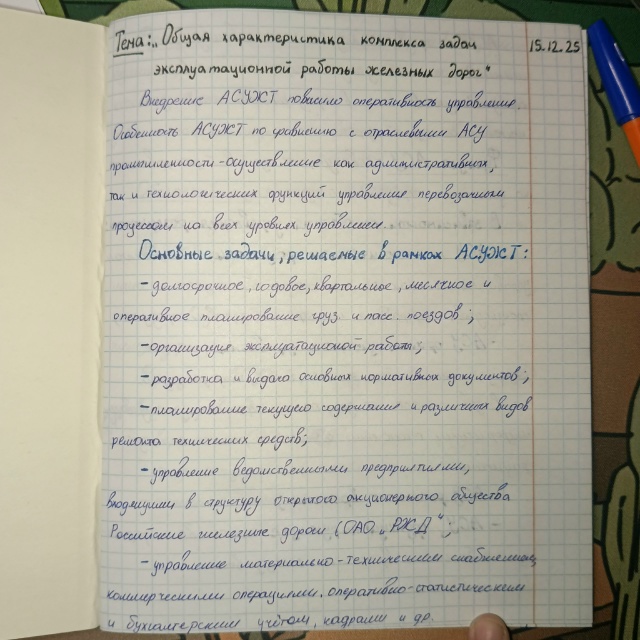 Тема: „Общая характеристика комплекса задач 15.12.25
эксплуатационной работы железных дорог“
Внедрение АСУЖТ повысило оперативность управления.
Особенность АСУЖТ по сравнению с отраслевыми АСУ
промышленности - осуществление как административных,
так и технологических функций управления перевозочным
процессом на всех уровнях управления.
Основные задачи, решаемые в рамках АСУЖТ:
- долгосрочное, годовое, квартальное, месячное и
оперативное планирование груз. и пасс. поездов;
- организация эксплуатационной работы;
- разработка и выдача основных нормативных документов;
- планирование текущего содержания и различных видов
ремонта технических средств;
- управление ведомственными предприятиями,
входящими в структуру открытого акционерного общества
Российские железные дороги (ОАО „РЖД“;
- управление материально-техническим снабжением,
коммерческими операциями, оперативно-статистическим
и бухгалтерским учётом, кадрами и др.